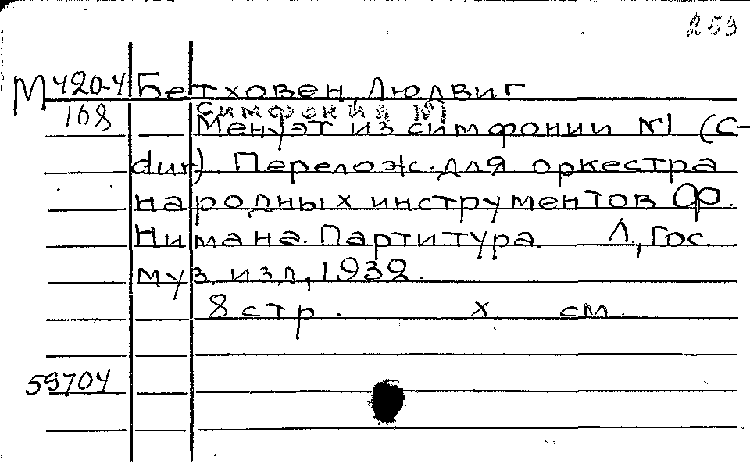 259
М 420-4 Бетховен, Людвиг
168 Симфония №1
Менуэт из симфонии №1 (C-
dur). Перелож. для оркестра
народных инструментов Ф.
Нимана. Партитура. Л, Гос.
муз. изд, 1939.
8 стр. х см.
59704